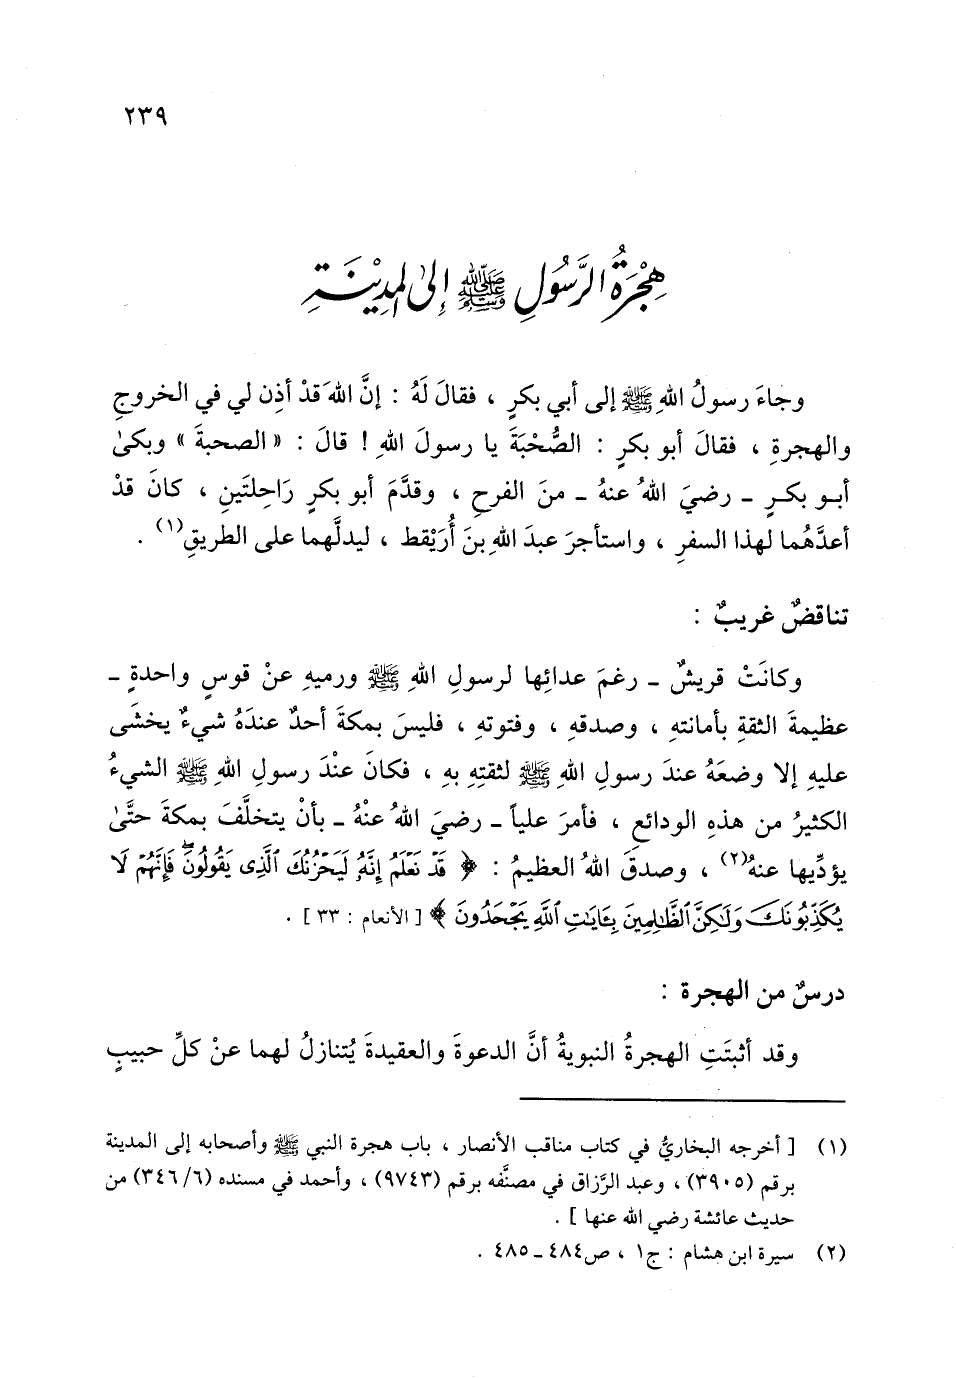 ٢٣٩
هِجْرَةُ الرَّسُولِ ﷺ إِلىٰ المدِيْنَةِ
وجاءَ رسولُ اللهِ ﷺ إلى أبي بكرٍ ، فقالَ لَهُ : إنَّ اللهَ قدْ أذِن لي في الخروجِ
والهجرةِ ، فقالَ أبو بكرٍ : الصُّحْبَةَ يا رسولَ اللهِ ! قالَ : « الصحبةَ » وبكىٰ
أبـو بكـرٍ ـ رضيَ اللهُ عنهُ ـ منَ الفرحِ ، وقدَّمَ أبو بكرٍ رَاحِلتَينِ ، كانَ قدْ
أعدَّهُما لهذا السفرِ ، واستأجرَ عبدَ اللهِ بنَ أُرَيْقط ، ليدلَّهما على الطريقِ(١) .
تناقضٌ غريبٌ :
وكانَتْ قريشٌ ـ رغمَ عدائِها لرسولِ اللهِ ﷺ ورميهِ عنْ قوسٍ واحدةٍ ـ
عظيمةَ الثقةِ بأمانتهِ ، وصدقهِ ، وفتوتهِ ، فليسَ بمكةَ أحدٌ عندَهُ شيءٌ يخشَى
عليهِ إلا وضعَهُ عندَ رسولِ اللهِ ﷺ لثقتِهِ بهِ ، فكانَ عنْدَ رسولِ اللهِ ﷺ الشيءُ
الكثيرُ من هذهِ الودائعِ ، فأمرَ علياً ـ رضيَ اللهُ عنْهُ ـ بأنْ يتخلَّفَ بمكةَ حتَّىٰ
يؤدِّيها عنهُ(٢) ، وصدقَ اللهُ العظيمُ : ﴿ قَدْ نَعْلَمُ إِنَّهُۥ لَيَحْزُنُكَ ٱلَّذِى يَقُولُونَۖ فَإِنَّهُمْ لَا
يُكَذِّبُونَكَ وَلَٰكِنَّ ٱلظَّٰلِمِينَ بِـَٔايَٰتِ ٱللَّهِ يَجْحَدُونَ ﴾ [ الأنعام : ٣٣ ] .
درسٌ من الهجرة :
وقد أثبتَتِ الهجرةُ النبويةُ أنَّ الدعوةَ والعقيدةَ يُتنازلُ لهما عنْ كلِّ حبيبٍ
(١) [ أخرجه البخاريُّ في كتاب مناقب الأنصار ، باب هجرة النبي ﷺ وأصحابه إلى المدينة
برقم (٣٩٠٥) ، وعبد الرَّزاق في مصنَّفه برقم (٩٧٤٣) ، وأحمد في مسنده (٣٤٦/٦) من
حديث عائشة رضي الله عنها ] .
(٢) سيرة ابن هشام : ج١ ، ص٤٨٤ ـ ٤٨٥ .